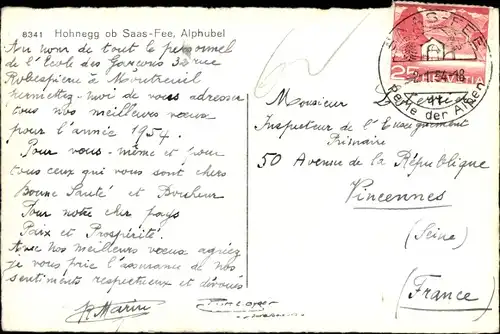 8341 Hohnegg ob Saas-Fee, Alphubel
Au nom de tout le personnel
de l'Ecole des Garçons 32 rue
Robespierre à Montreuil
Permettez-moi de vous adresser
tous nos meilleurs voeux
pour l'année 1954.
Pour vous-même et pour
tous ceux qui vous sont chers
Bonne Santé et Bonheur
Pour notre cher pays
Paix et Prospérité.
Avec nos meilleurs voeux agréez
je vous prie l'assurance de nos
sentiments respectueux et dévoués
Marin
SAAS-FEE
54-18
Perle der Alpen
25
HELVETIA
Monsieur
Inspecteur de l'Enseignement
Primaire
50 Avenue de la République
Vincennes
(Seine)
(France)